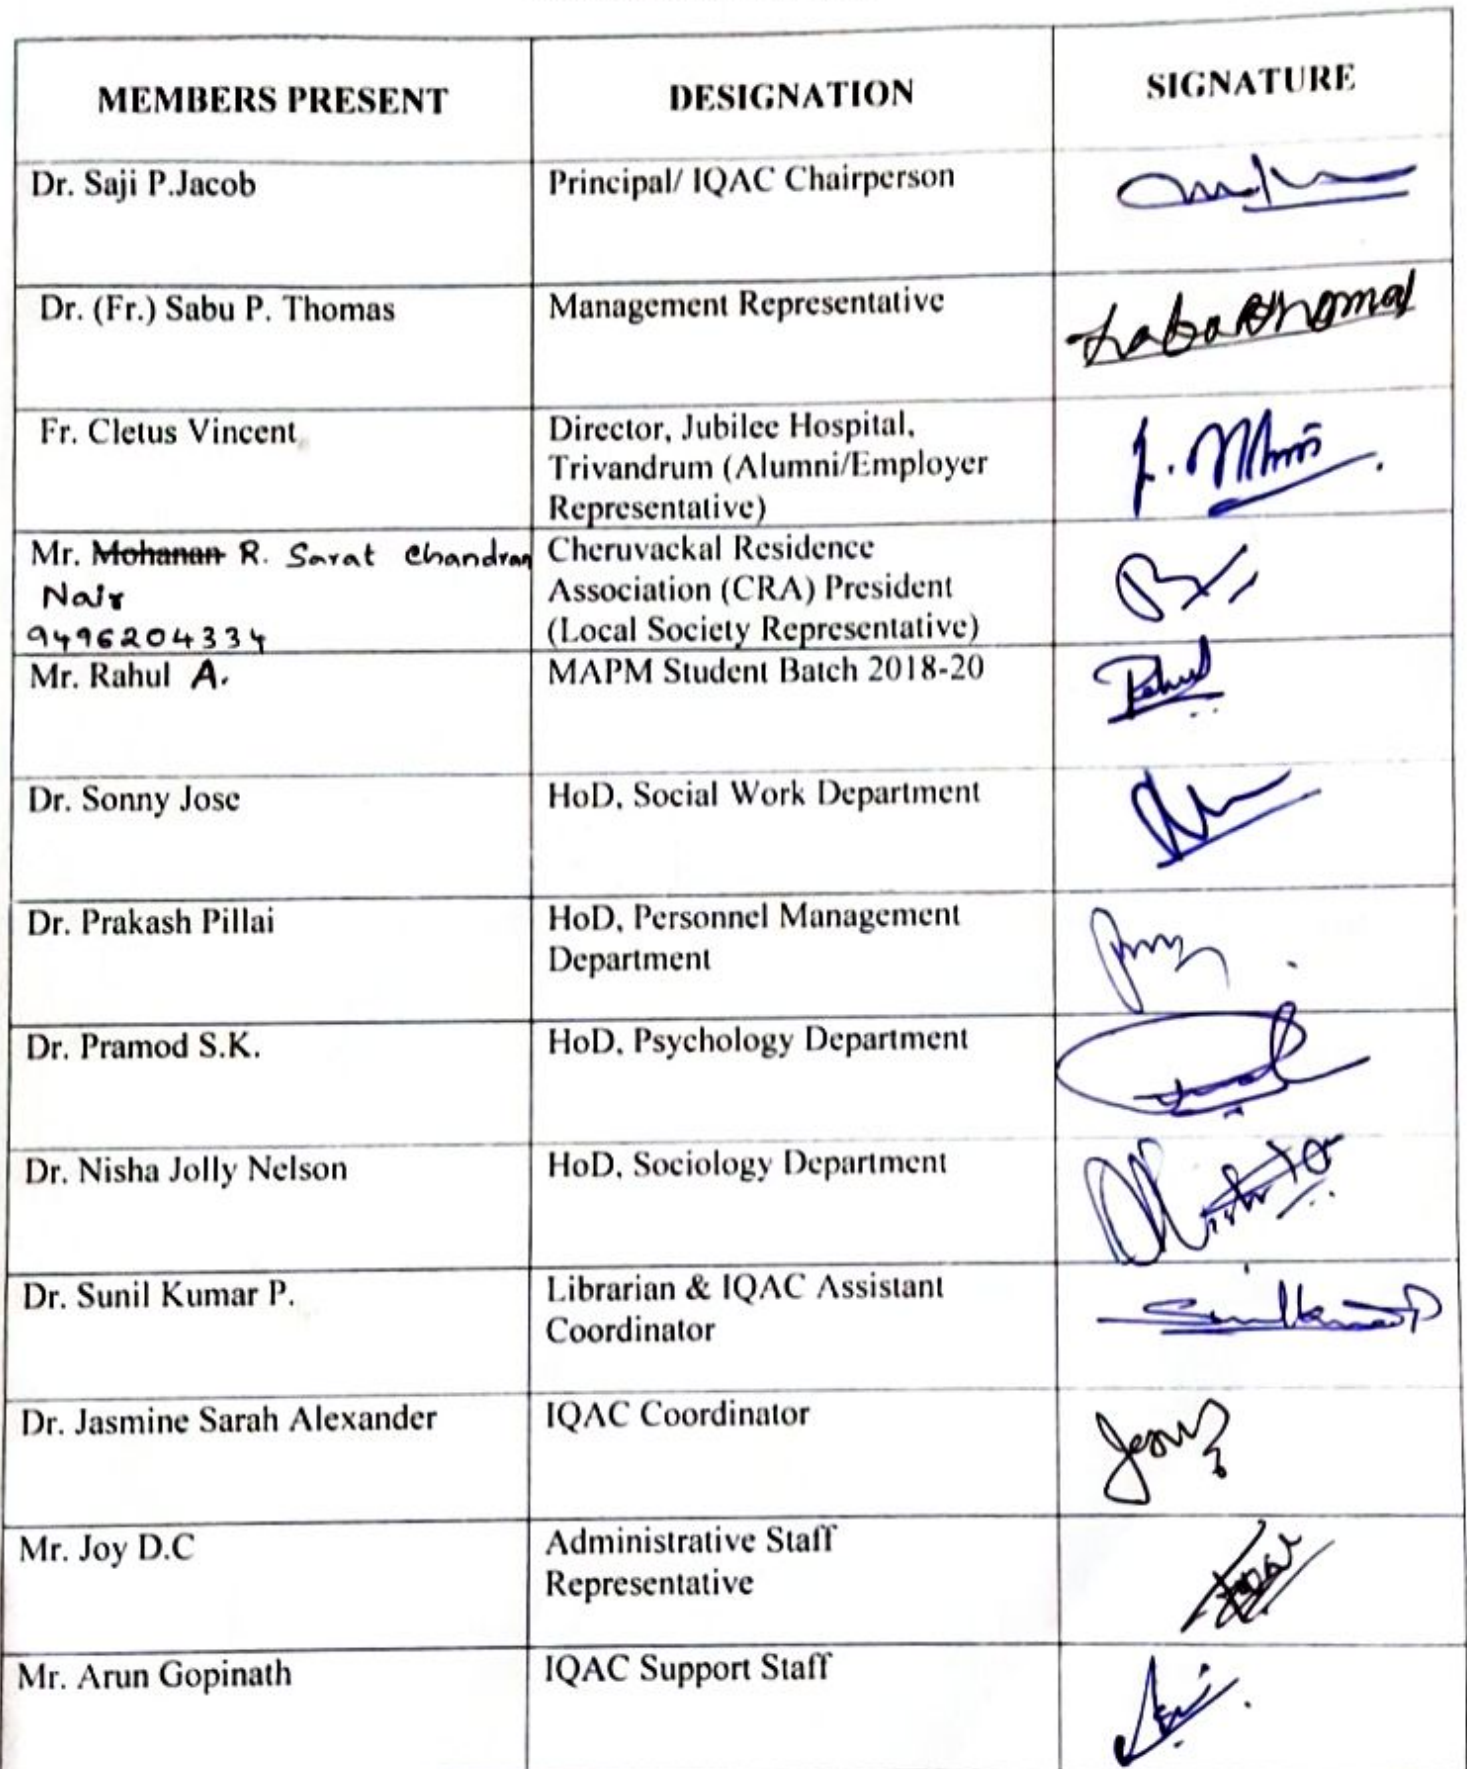 MEMBERS PRESENT DESIGNATION SIGNATURE
Dr. Saji P.Jacob Principal/ IQAC Chairperson
Dr. (Fr.) Sabu P. Thomas Management Representative
Fr. Cletus Vincent Director, Jubilee Hospital,
Trivandrum (Alumni/Employer
Representative)
Mr. Mohanan R. Sarat Chandran Cheruvackal Residence
Nair Association (CRA) President
9496204334 (Local Society Representative)
Mr. Rahul A. MAPM Student Batch 2018-20
Dr. Sonny Jose HoD, Social Work Department
Dr. Prakash Pillai HoD, Personnel Management
Department
Dr. Pramod S.K. HoD, Psychology Department
Dr. Nisha Jolly Nelson HoD, Sociology Department
Dr. Sunil Kumar P. Librarian & IQAC Assistant
Coordinator
Dr. Jasmine Sarah Alexander IQAC Coordinator
Mr. Joy D.C Administrative Staff
Representative
Mr. Arun Gopinath IQAC Support Staff